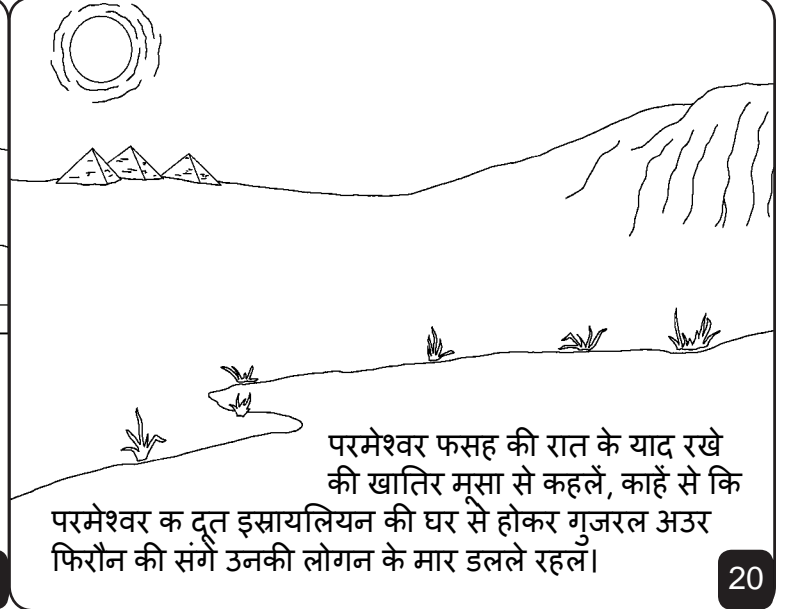 परमेश्वर फसह की रात के याद रखे
की खातिर मूसा से कहलें, काहें से कि
परमेश्वर क दूत इस्रायलियन की घर से होकर गुजरल अउर
फिरौन की संगे उनकी लोगन के मार डलले रहल।
20